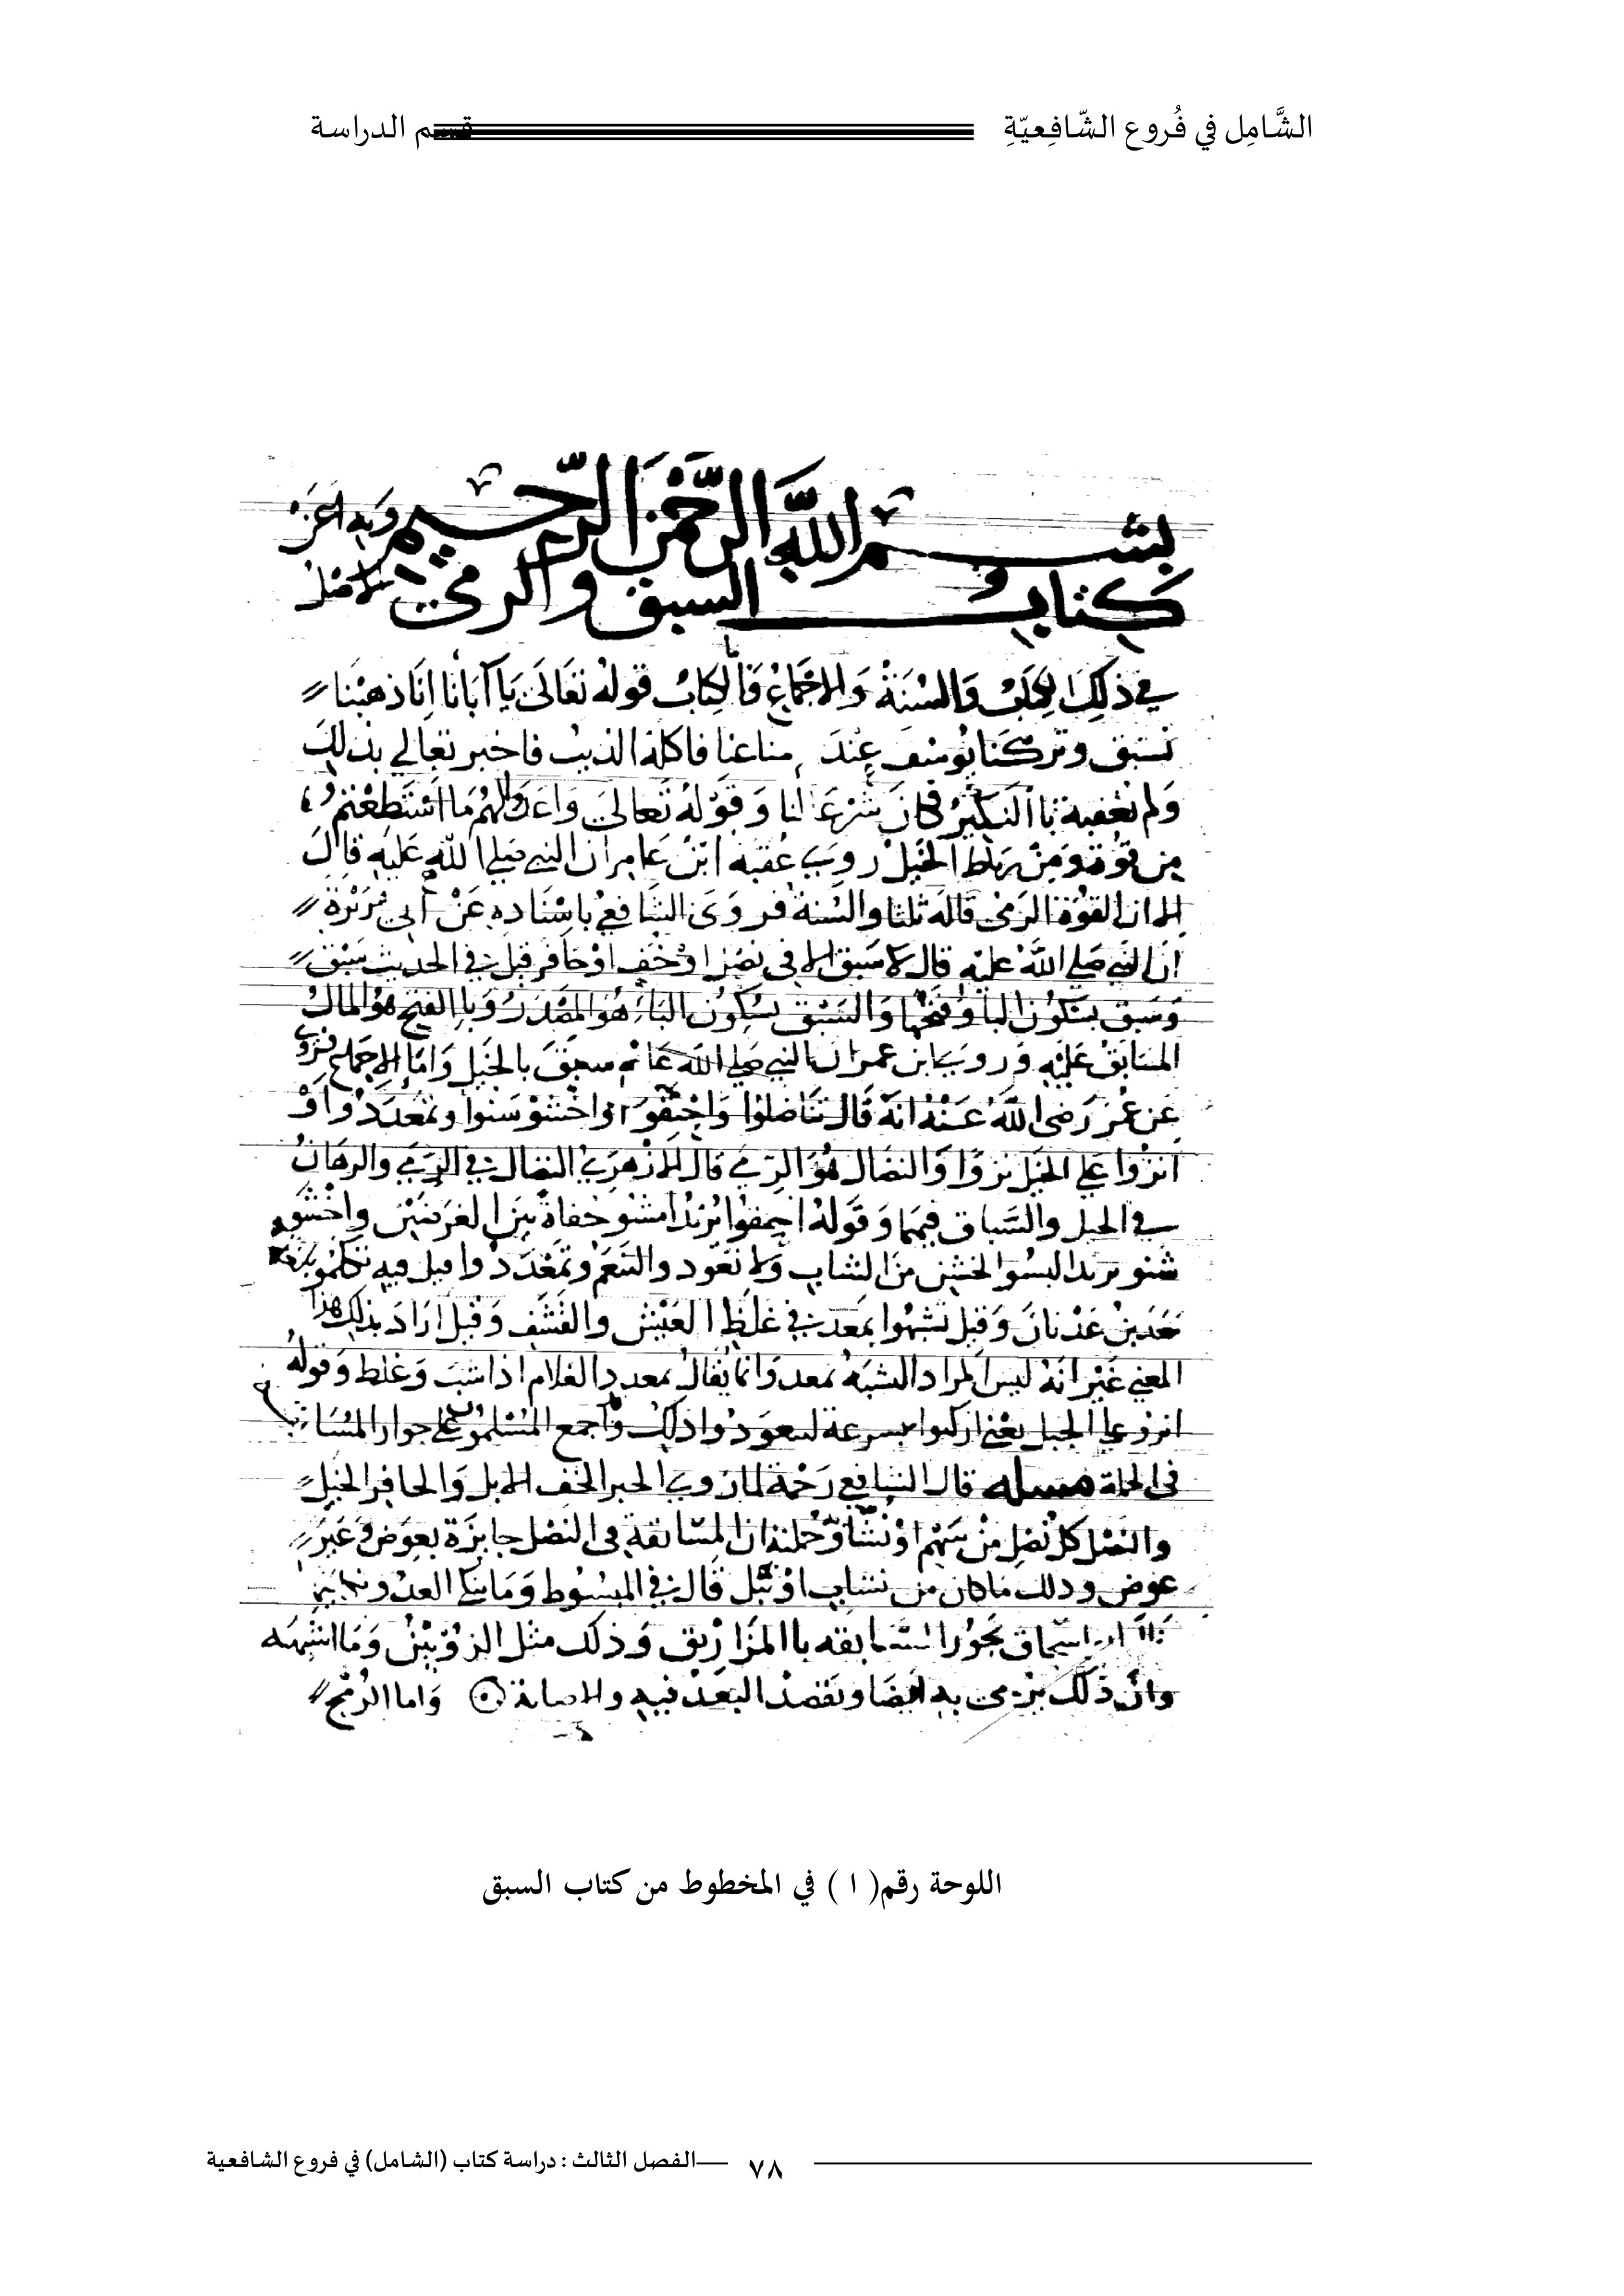 الشَّامِل في فُروع الشّافِعيّةِ قسم الدراسة
بسم الله الرحمن الرحيم وبه اعتز
كتاب السبق والرمي الاصل
في ذلك الكتاب والسنة والاجماع فالكتاب قوله تعالى يا آبانا انا ذهبنا
نستبق وتركنا يوسف عند متاعنا فاكله الذيب فاخبر تعالي بذلك
ولم يعقبه باالنكير فكان شرعا لنا وقوله تعالى واعدوا لهم ما استطعتم
من قوة ومن رباط الخيل روي عقبة ابن عامر ان النبي صلي الله عليه قال
الا ان القوة الرمي قاله ثلثا والسنة فروى الشافعي باسناده عن أبي هريرة
ان النبي صلي الله عليه قال لا سبق الا في نصل او خف او حافر قيل في الحديث سبق
وسبق بسكون البا وفتحها والسبق بسكون الباء هو المصدر وباالفتح هو المال
المسابق عليه وروي ابن عمر ان النبي صلي الله عليه سبق بالخيل واما الاجماع فروي
عن عمر رضي الله عنه انه قال تناضلوا واحتفوا واخشوشنوا وتمعددوا و
انزوا على الخيل نزوا والنضال هو الرمي قال الازهري النضال في الرمي والرهان
في الخيل والسباق فيهما وقوله احتفوا يريد امشو حفاة بين الغرضين واخشو
شنو يريد البسوا الخشن من الثياب ولا تعودوا التنعم وتمعددوا قيل فيه تكلموا بلغة
معد بن عدنان وقيل تشبهوا بمعد في غلظ العيش والقشف وقيل اراد بذلك هذا
المعني غير انه ليس المراد الشبه بمعد وانما يقال تمعدد الغلام اذا شب وغلظ وقوله
انزو علي الخيل يعني اركبوا بسرعة لتعودوا ذلك واجمع المسلمون على جواز المسابقة
في الجملة مسله قال الشافعي رحمة لما روي الخبر الخف الابل والحافر الخيل
والنصل كل نصل من سهم او نشابة وجملته ان المسابقة في النصل جايزة بعوض وغير
عوض وذلك ما كان من نشاب او نبل قال في المبسوط وما ينكي العدو نكايتهما
قال ابو اسحاق يجوز المسابقه باالمزاريق وذلك مثل الزوبين وما اشبهه
وان ذلك يرمى به ايضا ويقصد البعد فيه والاصابة واما الرمح
اللوحة رقم( ١ ) في المخطوط من كتاب السبق
٧٨ الفصل الثالث : دراسة كتاب (الشامل) في فروع الشافعية